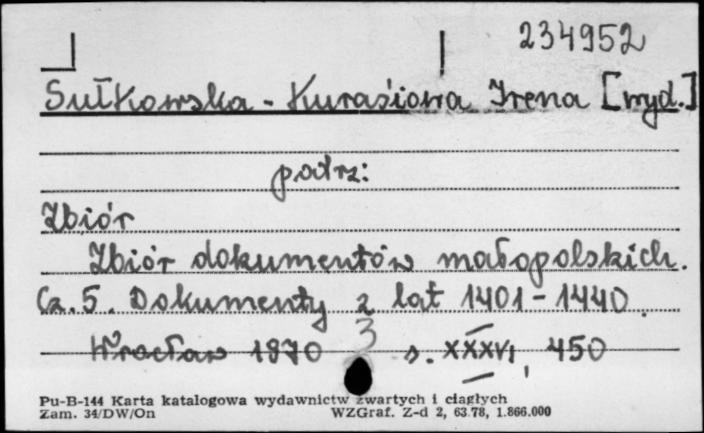 234952
Sułkowska-Kuraśiowa Irena [wyd.]
patrz:
Zbiór
Zbiór dokumentów małopolskich.
Cz. 5. Dokumenty z lat 1401-1440.
Wrocław 1970 s. XXXVI, 450
3
Pu-B-144 Karta katalogowa wydawnictw zwartych i ciągłych
Zam. 34/DW/On WZGraf. Z-d 2, 63.78, 1.866.000